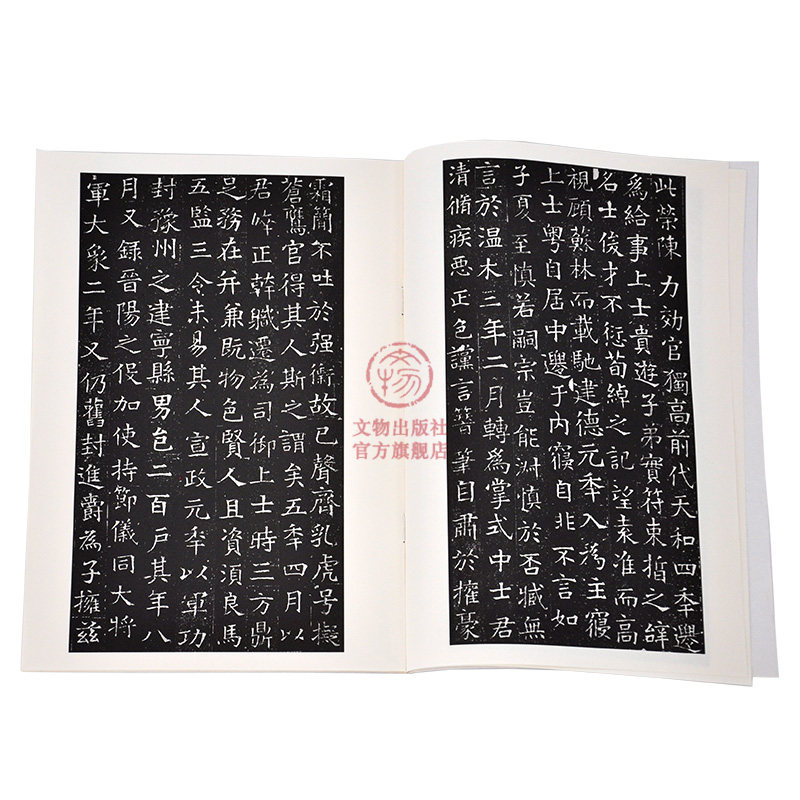 此榮陳力効官獨高前代天和四秊遷
爲給事上士貴遊子弟實符束晳之辝
名士俊才不愆荀綽之記望袁准而高
視顧蘇林而載馳建德元秊入為主寢
上士粤自居中遷于内寢自非不言如
子夏至慎若嗣宗豈能渊慎於否臧無
言於温木三年二月轉爲掌式中士君
清脩疾惡正色讜言簪筆自肅於權豪
霜簡不吐於强禦故已聲齊乳虎号擬
蒼鷹官得其人斯之謂矣五秊四月以
君婞正幹職遷為司御上士時三方鼎
足務在并兼既物色賢人且資須良馬
五監三令未易其人宣政元秊以軍功
封豫州之建寧縣男邑二百戸其年八
月又録晉陽之役加使持節儀同大將
軍大象二年又仍舊封進爵為子擁兹
文物
文物出版社
官方旗舰店